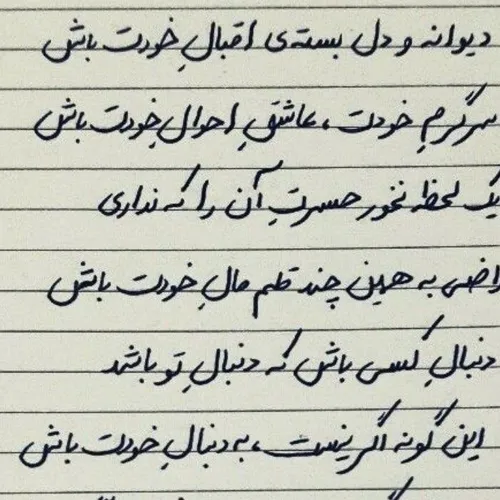 دیوانه و دل بسته‌ی اقبالِ خودت باش
سرگرمِ خودت، عاشقِ احوالِ خودت باش
یک لحظه نخور حسرتِ آن را که نداری
راضی به همین چند قلم مالِ خودت باش
دنبالِ کسی باش که دنبالِ تو باشد
این گونه اگر نیست، به دنبالِ خودت باش